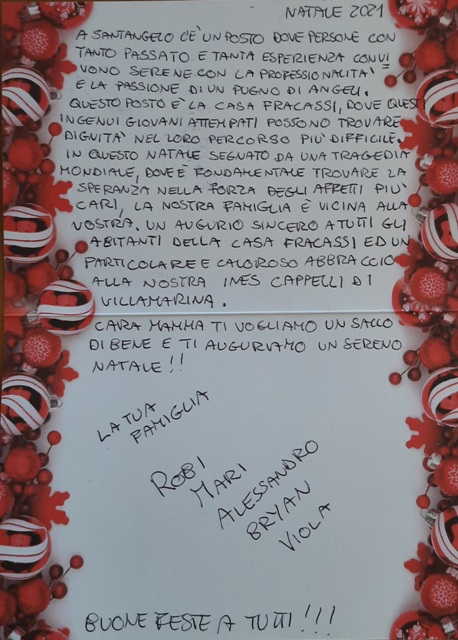 NATALE 2021
A SANTANGELO C'È UN POSTO DOVE PERSONE CON
TANTO PASSATO E TANTA ESPERIENZA CONVI
VONO SERENE CON LA PROFESSIONALITA'
E LA PASSIONE DI UN PUGNO DI ANGELI.
QUESTO POSTO E' LA CASA FRACASSI, DOVE QUESTI
INGENUI GIOVANI ATTEMPATI POSSONO TROVARE
DIGNITA' NEL LORO PERCORSO PIU' DIFFICILE.
IN QUESTO NATALE SEGNATO DA UNA TRAGEDIA
MONDIALE, DOVE È FONDAMENTALE TROVARE LA
SPERANZA NELLA FORZA DEGLI AFFETTI PIU'
CARI, LA NOSTRA FAMIGLIA È VICINA ALLA
VOSTRA. UN AUGURIO SINCERO A TUTTI GLI
ABITANTI DELLA CASA FRACASSI ED UN
PARTICOLARE E CALOROSO ABBRACCIO
ALLA NOSTRA INES CAPPELLI DI
VILLAMARINA.
CARA MAMMA TI VOGLIAMO UN SACCO
DI BENE E TI AUGURIAMO UN SERENO
NATALE!!
LA TUA
FAMIGLIA
ROBI
MARI
ALESSANDRO
BRYAN
VIOLA
BUONE FESTE A TUTTI!!!